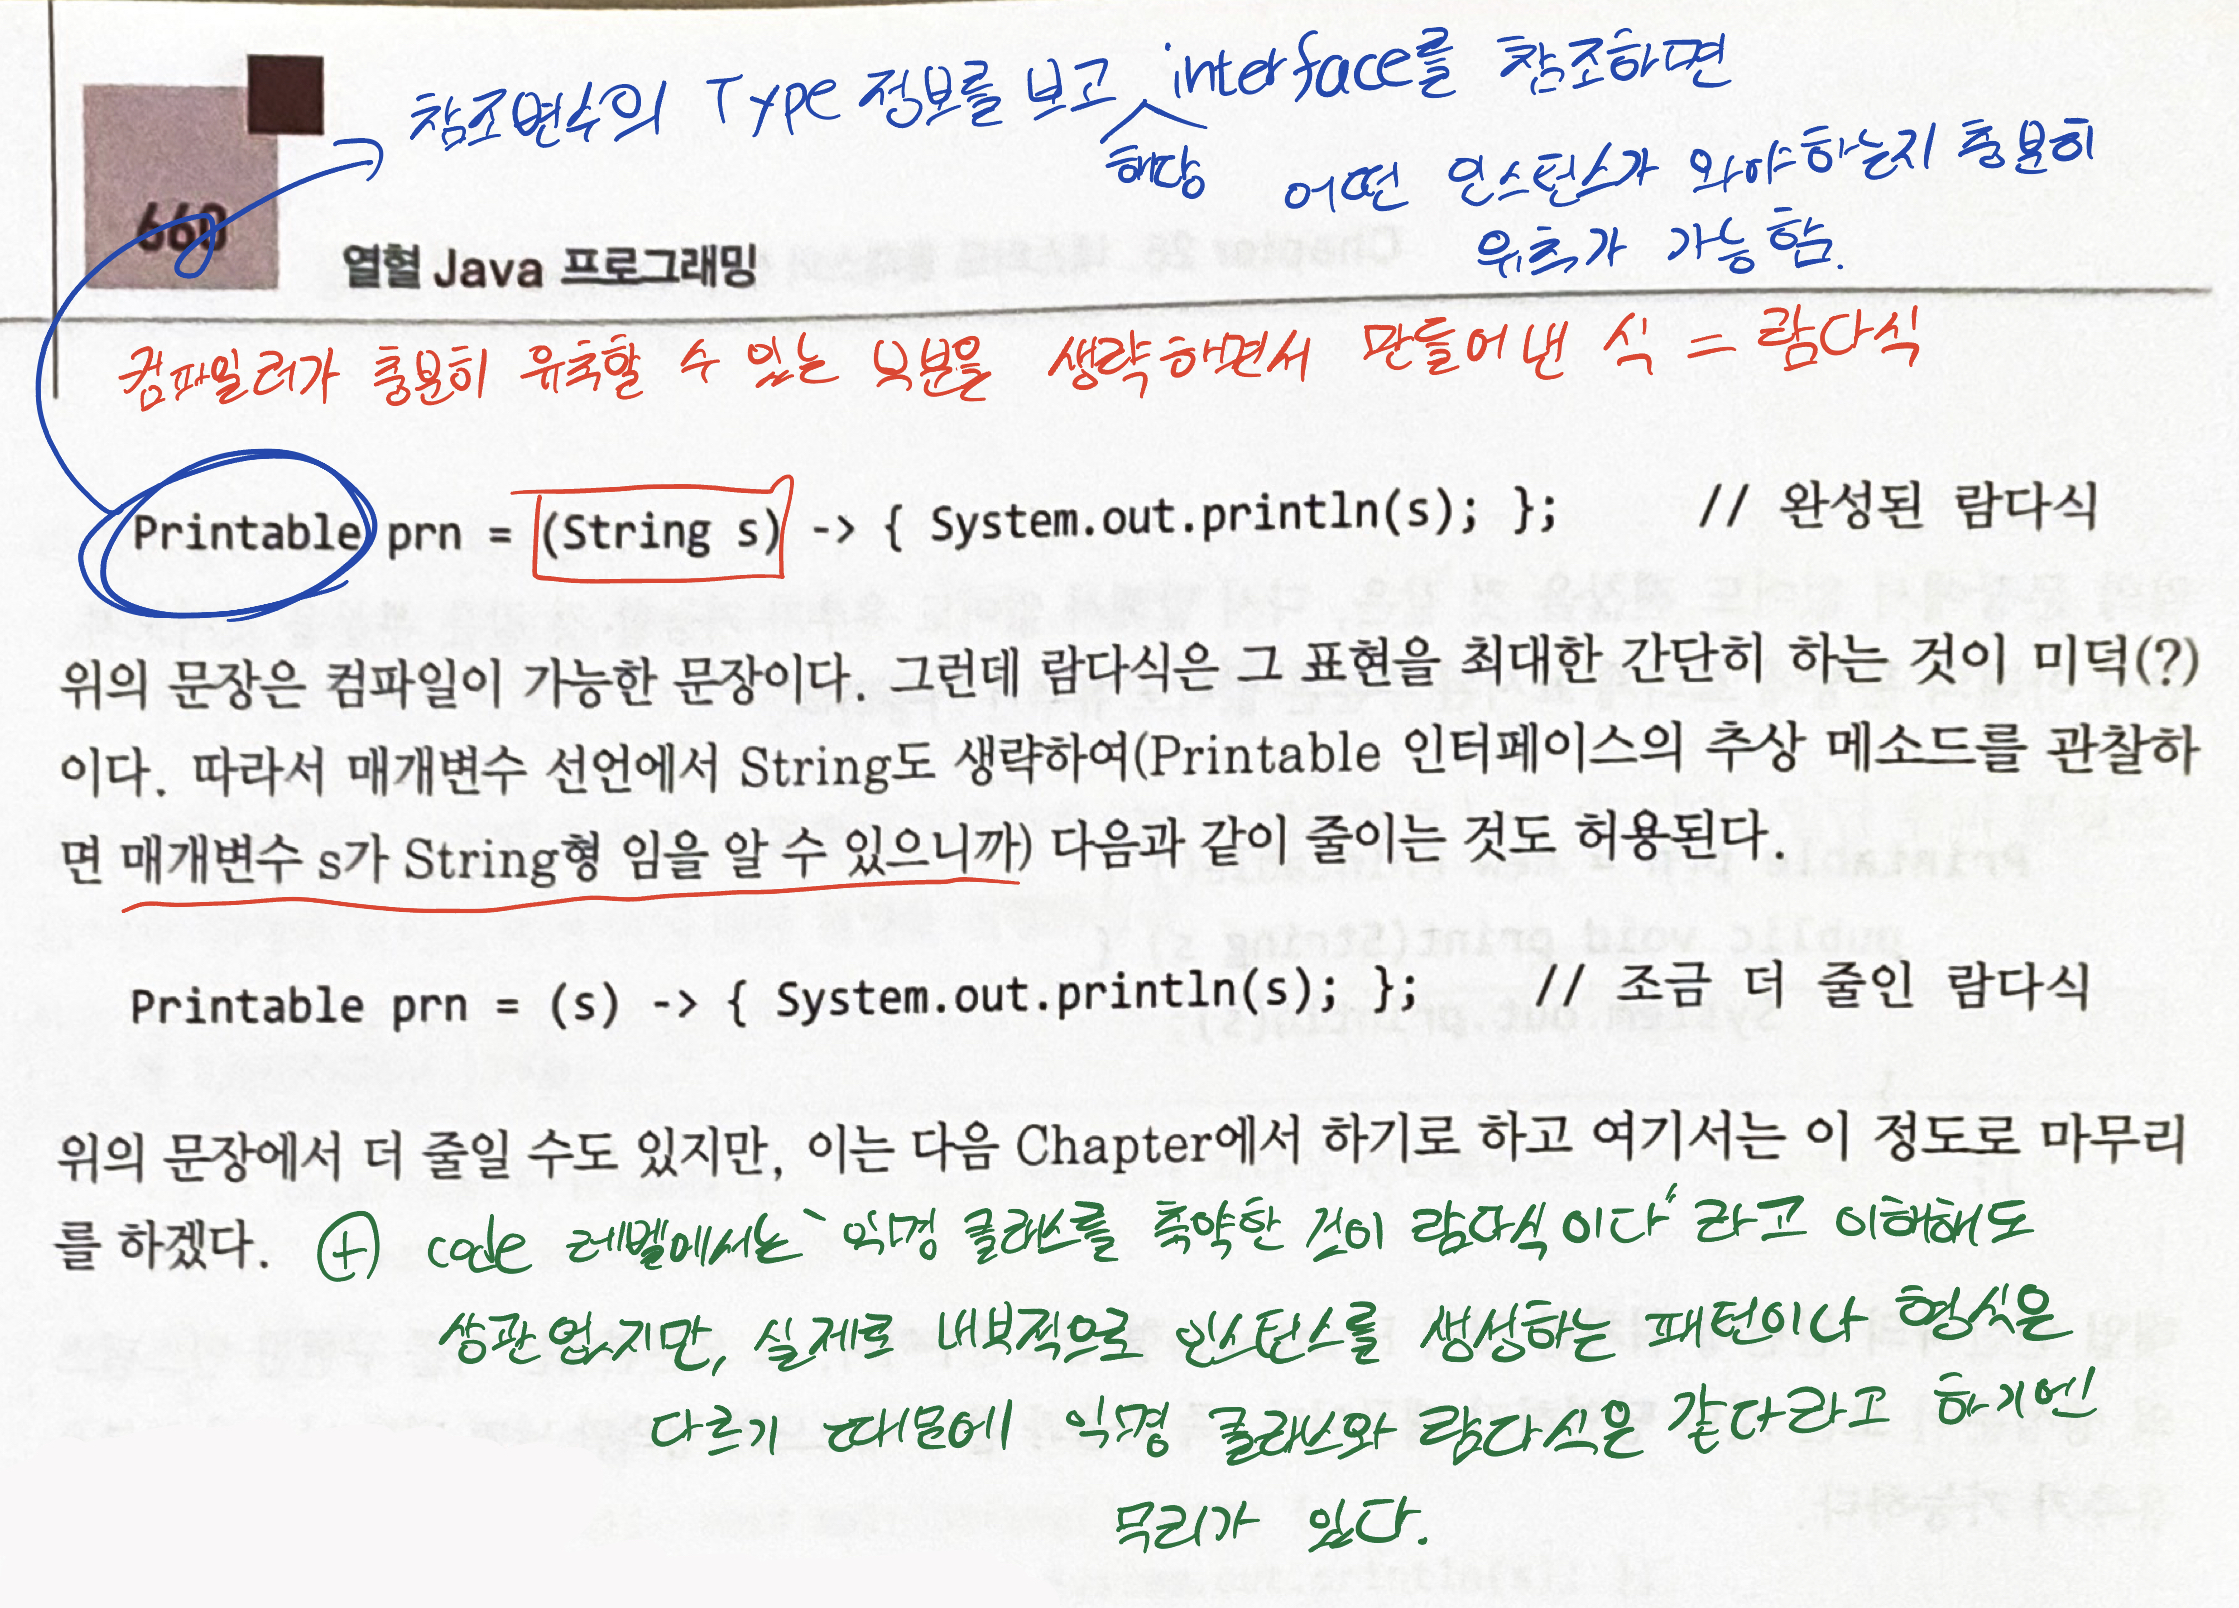 참조변수의 Type 정보를 보고 해당 interface를 참조하면
어떤 인스턴스가 와야하는지 충분히
유추가 가능함.
660
열혈 Java 프로그래밍
컴파일러가 충분히 유추할 수 있는 부분을 생략하면서 만들어낸 식 = 람다식
Printable prn = (String s) -> { System.out.println(s); }; // 완성된 람다식
위의 문장은 컴파일이 가능한 문장이다. 그런데 람다식은 그 표현을 최대한 간단히 하는 것이 미덕(?)
이다. 따라서 매개변수 선언에서 String도 생략하여(Printable 인터페이스의 추상 메소드를 관찰하
면 매개변수 s가 String형 임을 알 수 있으니까) 다음과 같이 줄이는 것도 허용된다.
Printable prn = (s) -> { System.out.println(s); }; // 조금 더 줄인 람다식
위의 문장에서 더 줄일 수도 있지만, 이는 다음 Chapter에서 하기로 하고 여기서는 이 정도로 마무리
를 하겠다.
⊕ code 레벨에서는 "익명 클래스를 축약한 것이 람다식이다" 라고 이해해도
상관 없지만, 실제로 내부적으로 인스턴스를 생성하는 패턴이나 형식은
다르기 때문에 익명 클래스와 람다식은 같다라고 하기엔
무리가 있다.